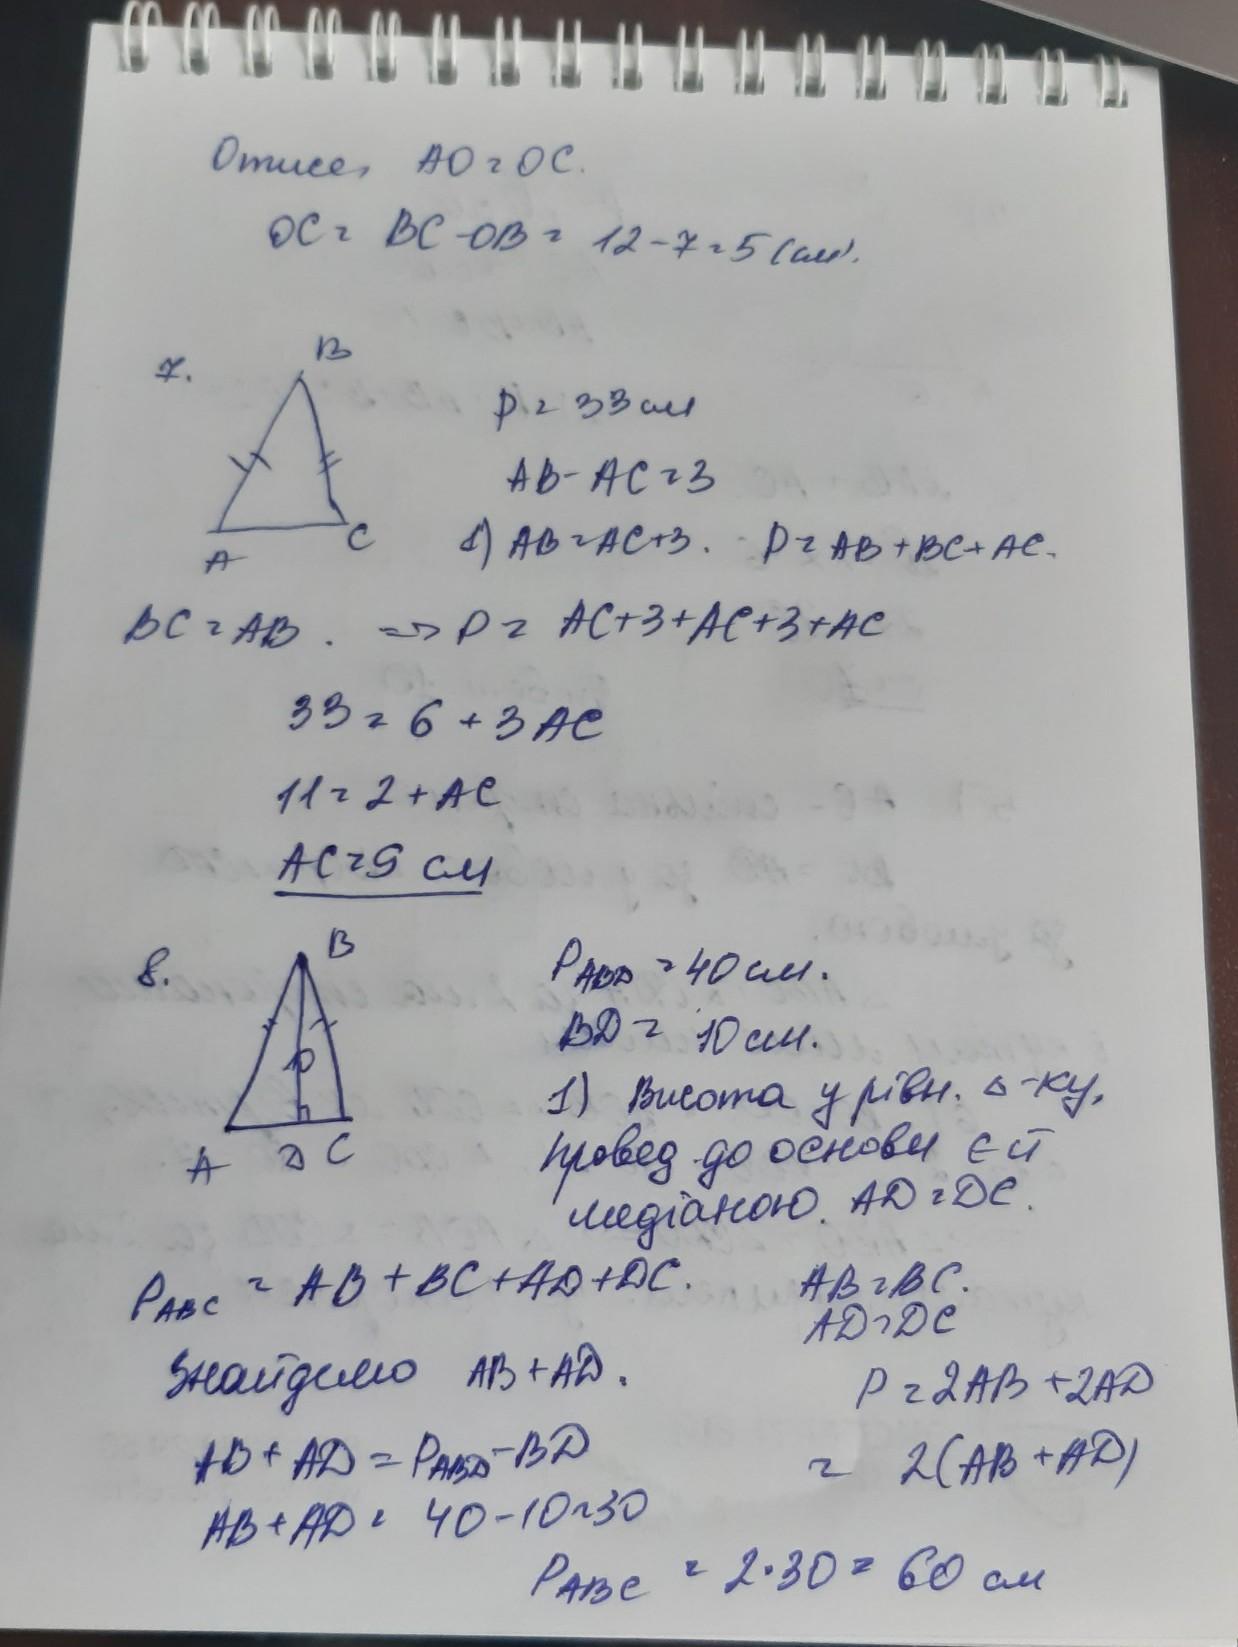 Отже, AO = OC.
OC = BC - OB = 12 - 7 = 5 (см).
7.
B
A
C
P = 33 см
AB - AC = 3
1) AB = AC+3. P = AB + BC + AC.
BC = AB. => P = AC+3+AC+3+AC
33 = 6 + 3AC
11 = 2 + AC
AC = 9 см
8.
B
10
A D C
P ABD = 40 см.
BD = 10 см.
1) Висота у рівн. △-ку,
провед до основи є й
медіаною. AD = DC.
P ABC = AB + BC + AD + DC. AB = BC.
AD = DC
Знайдемо AB + AD.
P = 2AB + 2AD
AB + AD = P ABD - BD
= 2(AB + AD)
AB + AD = 40 - 10 = 30
P ABC = 2·30 = 60 см